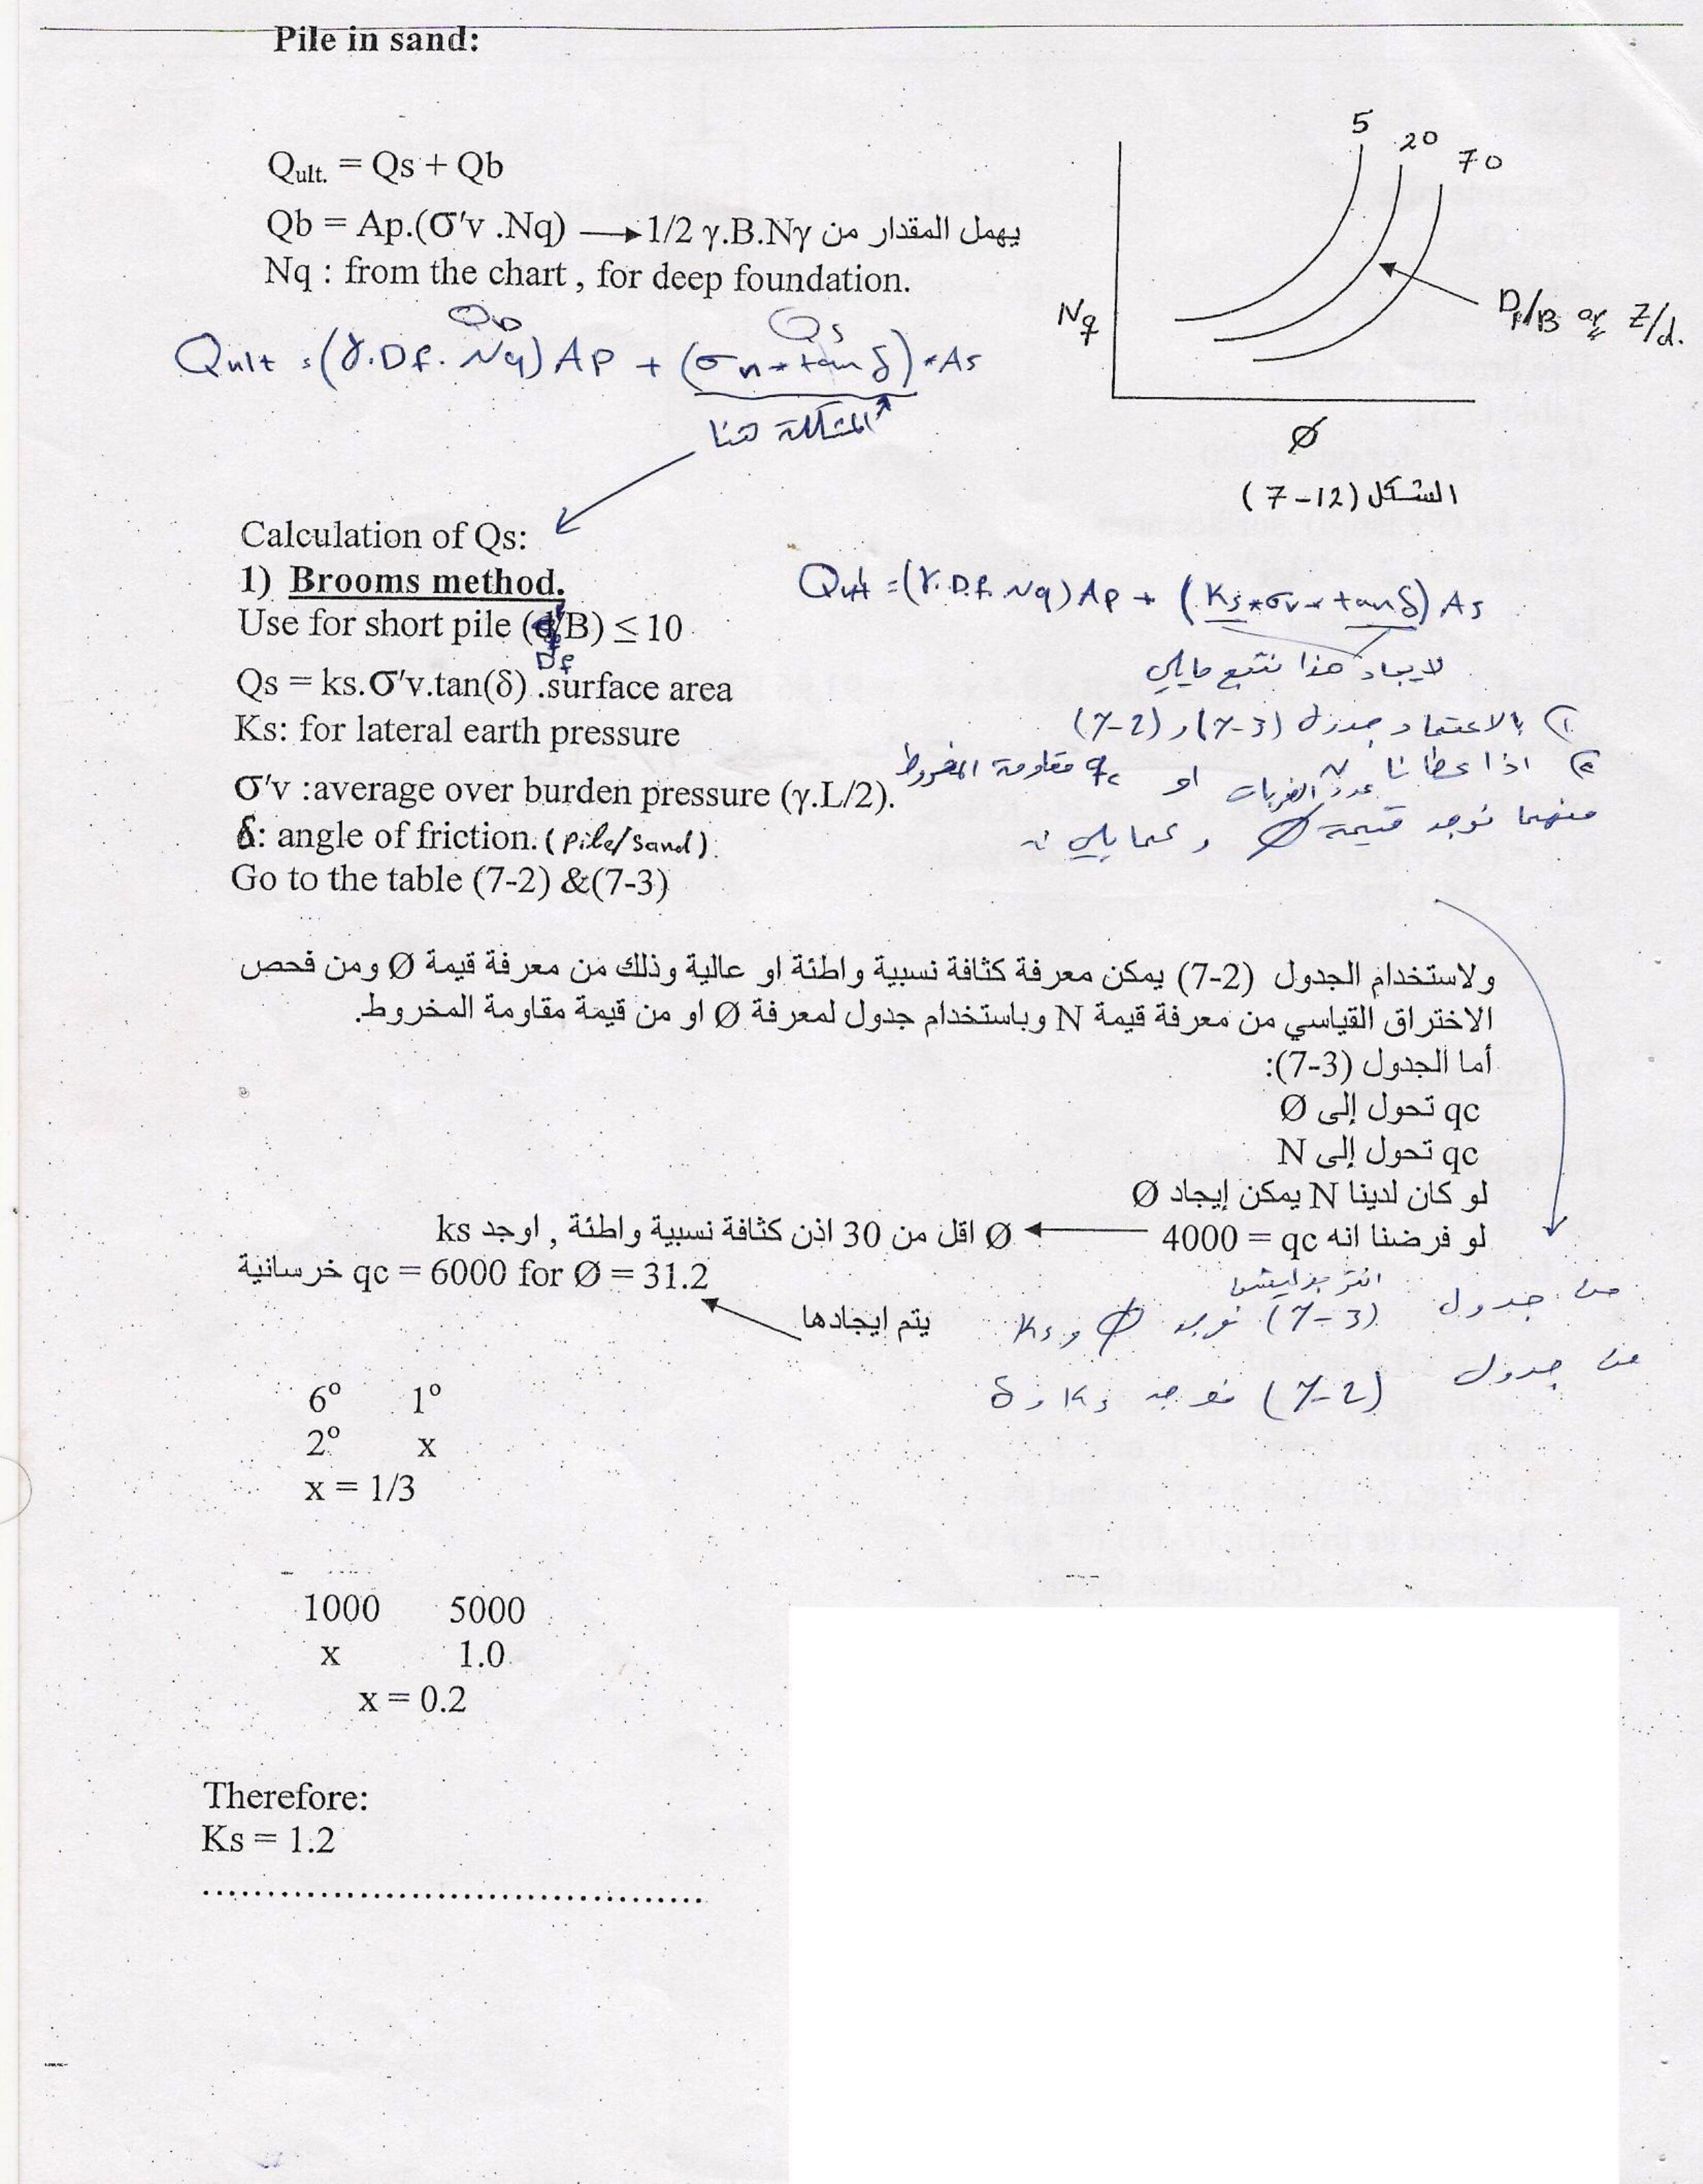 Pile in sand:
Qult. = Qs + Qb
Qb = Ap.(σ'v .Nq) → 1/2 γ.B.Nγ يهمل المقدار من
Nq : from the chart , for deep foundation.
5 20 70
Nq
Df/B or Z/d.
Ø
الشكل (7-12)
Qb Qs
Qult = (γ.Df. Nq) Ap + (σn * tan δ) * As
المشكلة هنا
Calculation of Qs:
1) Brooms method.
Use for short pile (d/B) ≤ 10
Df
Qs = ks.σ'v.tan(δ) .surface area
Ks: for lateral earth pressure
σ'v :average over burden pressure (γ.L/2).
δ: angle of friction. (pile/sand).
Go to the table (7-2) &(7-3)
Qult = (γ. Df. Nq) Ap + (Ks * σv * tan δ) As
لايجاد هذا نتبع مايلي
١) بالاعتماد جدول (7-3) و (7-2)
٢) اذا عطانا N عدد الضربات او qc مقاومة المخروط
منهما نوجد قيمة Ø و كما يلي :-
ولاستخدام الجدول (7-2) يمكن معرفة كثافة نسبية واطئة او عالية وذلك من معرفة قيمة Ø ومن فحص
الاختراق القياسي من معرفة قيمة N وباستخدام جدول لمعرفة Ø او من قيمة مقاومة المخروط.
أما الجدول (7-3):
qc تحول إلى Ø
qc تحول إلى N
لو كان لدينا N يمكن إيجاد Ø
لو فرضنا انه qc = 4000 ← Ø اقل من 30 اذن كثافة نسبية واطئة , اوجد ks
خرسانية qc = 6000 for Ø = 31.2
يتم ايجادها
من جدول (7-3) نوجد Ø و Ks
من جدول (7-2) نوجد Ks و δ
6º 1º
2º x
x = 1/3
1000 5000
x 1.0
x = 0.2
Therefore:
Ks = 1.2